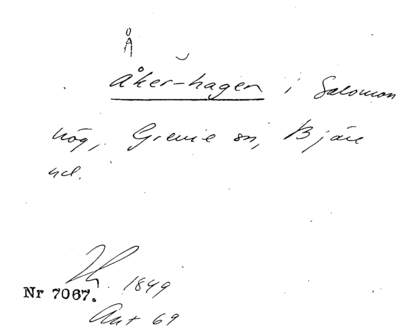 Å
åker-hagen i Salomon
hög, Grevie sn, Bjäre
hd.
1849
Nr 7067.
Ant 69